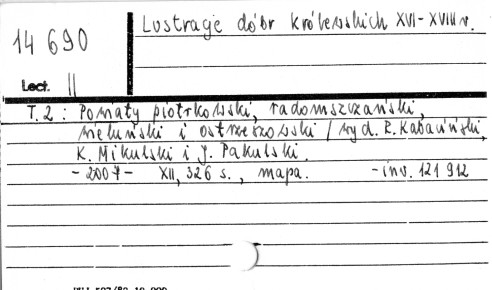 14 690
Lustracje dóbr królewskich XVI-XVIII w.
Lect. II
T. 2 : Powiaty piotrkowski, radomszczański,
wieluński i ostrzeszowski / wyd. R. Kabaciński,
K. Mikulski i J. Pakulski.
- 2007 - XII, 326 s., mapa. - inv. 121 912